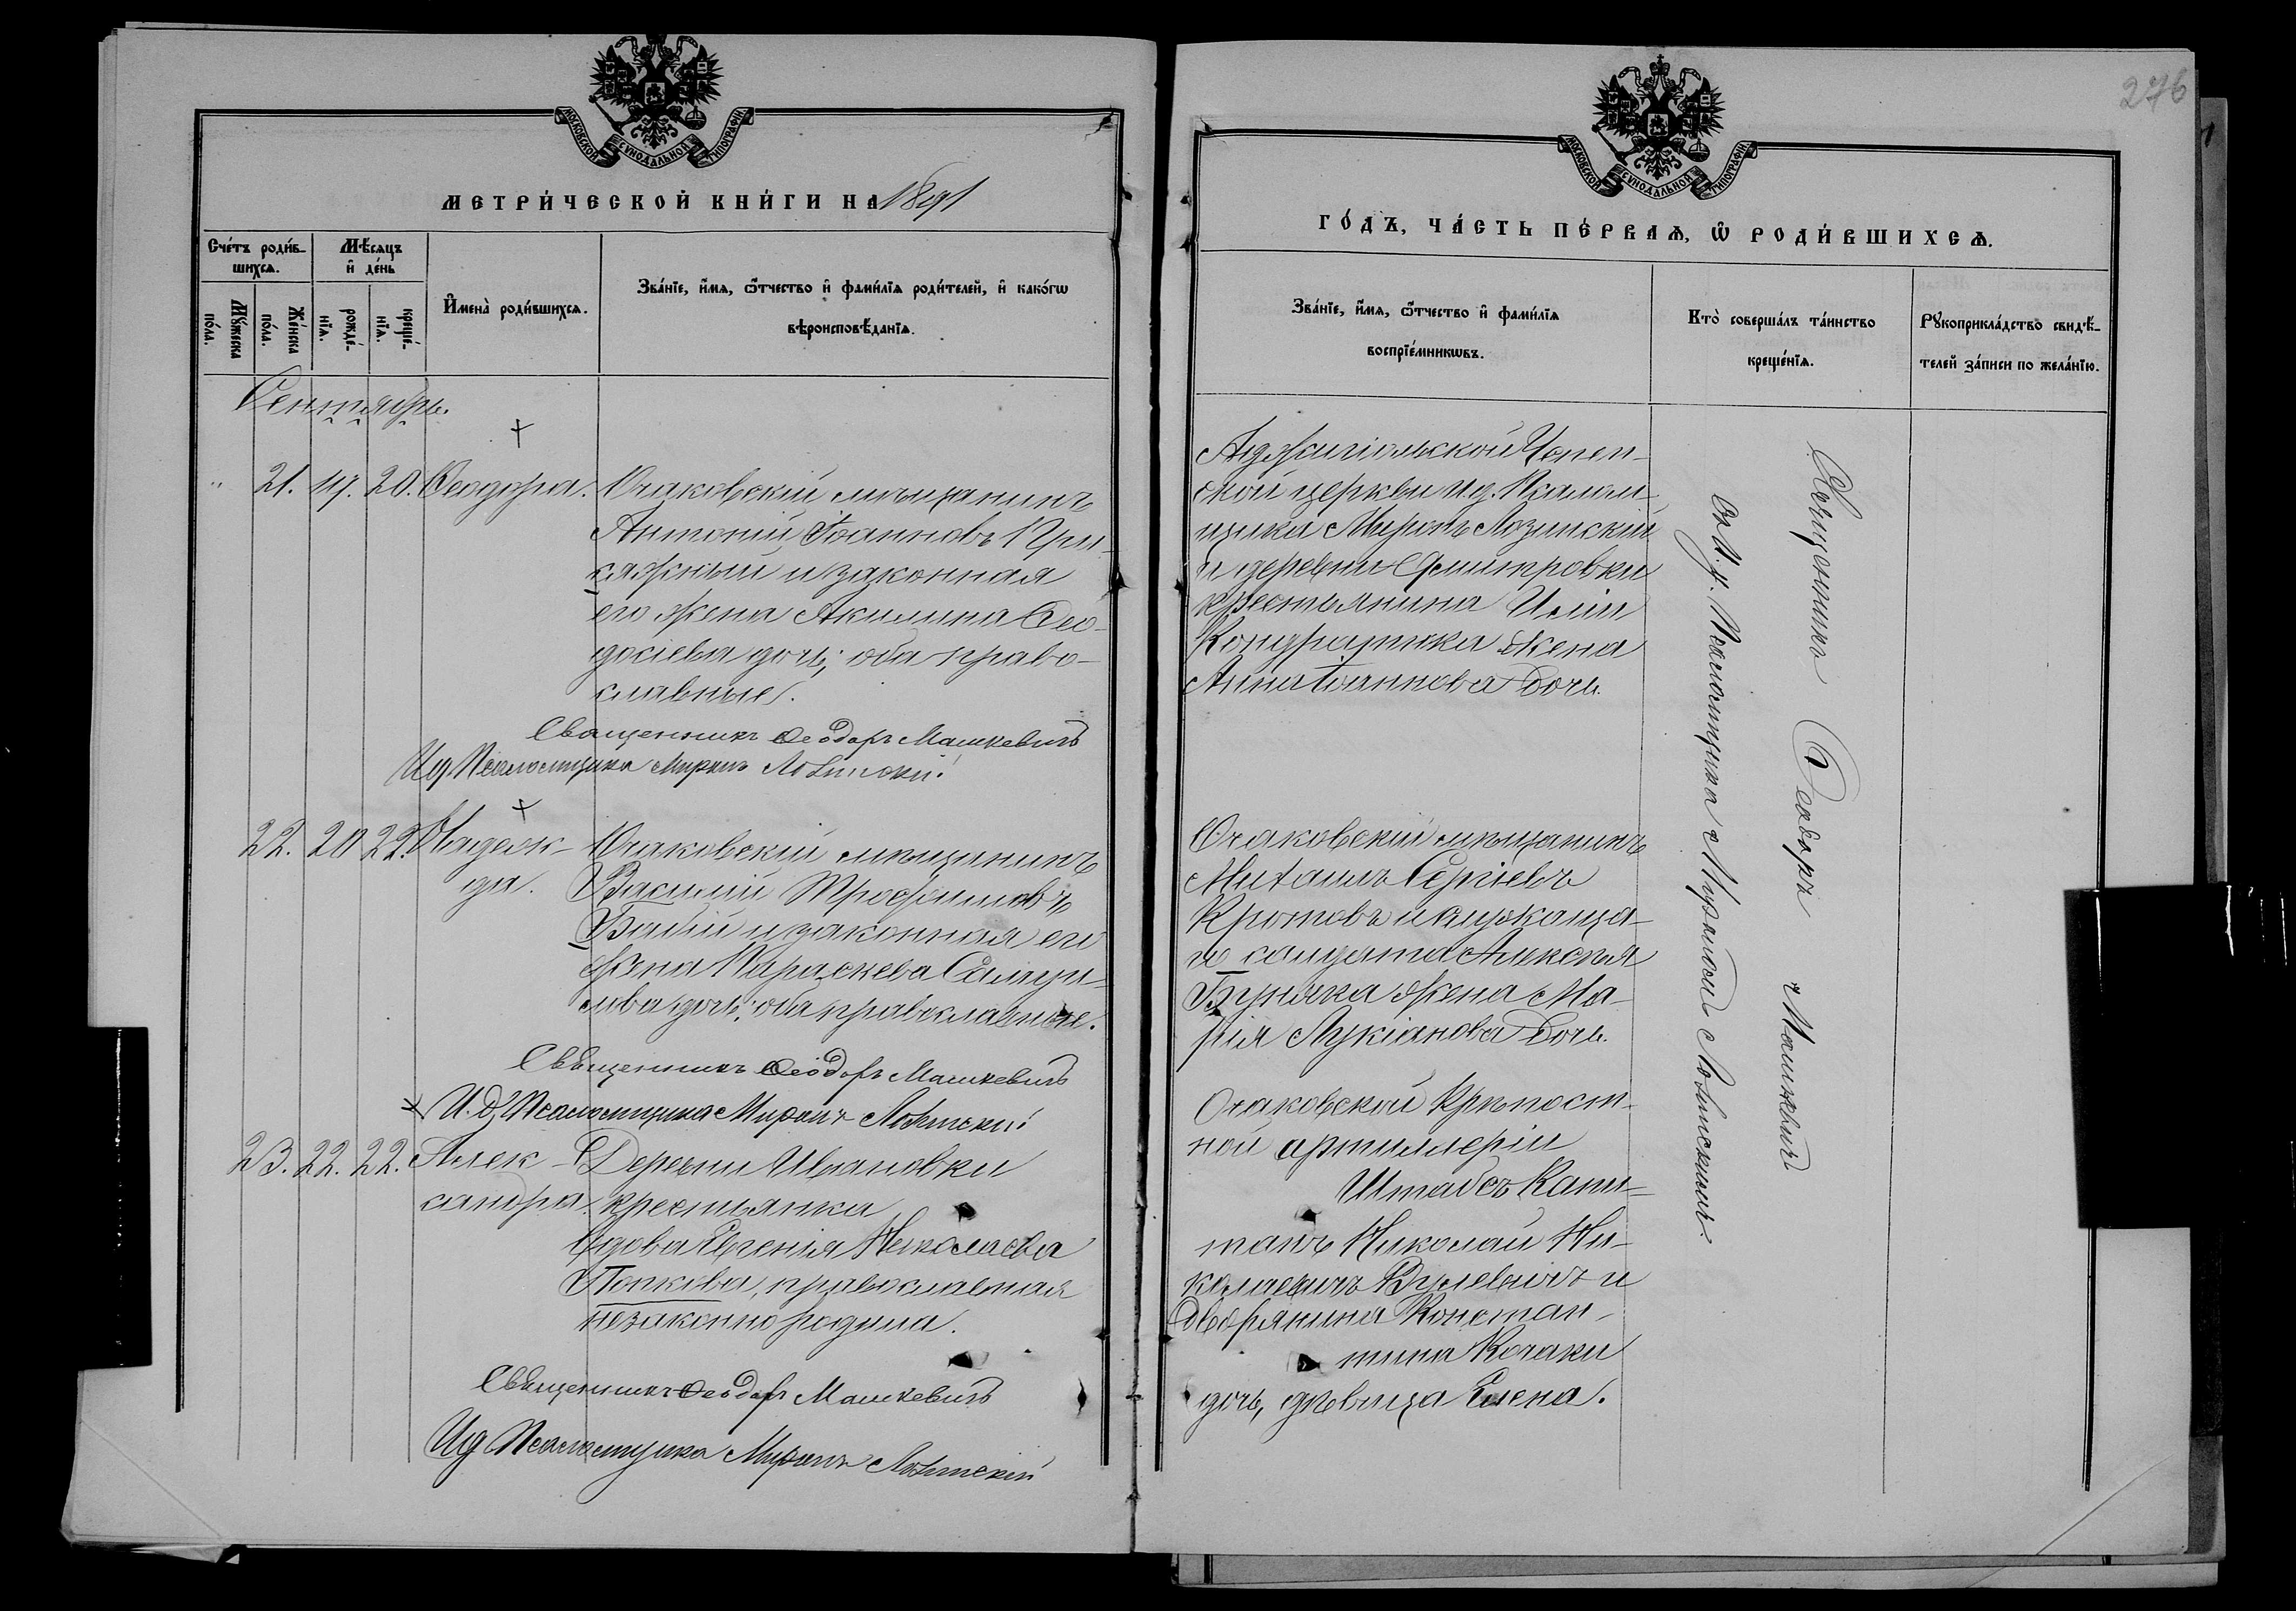 МОСКОВСКОЙ СУНОДАЛЬНОЙ ТИПОГРАФІИ.
МЕТРИ́ЧЕСКОЙ КНИ́ГИ НА 1891
Сче́тъ роди́в-
шихсѧ.
Мѣ́сяцъ
и҆ де́нь
Мꙋ́жеска
по́ла.
Же́нска
по́ла.
рожде́-
нїѧ.
креще́-
нїѧ.
И҆мена̀ роди́вшихсѧ.
Зва́нїе, и҆́мѧ, ѻ҆́тчество и҆ фами́лїѧ роди́телей, и҆ како́гѡ
вѣроисповѣ́данїѧ.
Сентябрь.
" 21. 17. 20. Ѳеодора. Очаковскій мѣщанинъ
Антоній Іоанновъ При-
кажный и законная
его жена Акилина Ѳео-
досіева дочь; оба право-
славные.
Священникъ Ѳеодоръ Машкевичъ
Ид Псаломщика Миронъ Лозинскій
22. 20 22. Надеж- Очаковскій мѣщанинъ
да. Василій Трофимовъ
Бабій и законная его
жена Параскева Самуи-
лова дочь; оба православные.
Священникъ Ѳеодоръ Машкевичъ
И.д. Псаломщика Миронъ Лозинскій
23. 22. 22. Алек- Деревни Ивановки
сандра. крестьянка
вдова Евгенія Николаева
Попкова, православная
незаконно родила.
Священникъ Ѳеодоръ Машкевичъ
Ид Псаломщика Миронъ Лозинскій
276
МОСКОВСКОЙ СУНОДАЛЬНОЙ ТИПОГРАФІИ.
ГО́ДЪ, ЧА́СТЬ ПЕ́РВАѦ, Ѡ҆ РОДИ́ВШИХСѦ.
Зва́нїе, и҆́мѧ, ѻ҆́тчество и҆ фами́лїѧ
воспрїе́мникѡвъ.
Кто̀ соверша́лъ та́инство
креще́нїѧ.
Рꙋкоприкла́дство свидѣ́-
телей за́писи по жела́нїю.
Аджигіольской Успен-
ской церкви и.д. Псалом-
щика Миронъ Лозинскій
и деревни Дмитровки
крестьянина Иліи
Кондратюка жена
Анна Іоаннова дочь.
Очаковскій мѣщанинъ
Михаилъ Сергіевъ
Кротовъ и служаща-
го солдата Алексѣя
Буряка жена Ма-
рія Лукіанова дочь.
Очаковской Крѣпост-
ной артиллеріи
Штабсъ Капи-
танъ Николай Ни-
колаевичъ Вулевичъ и
дворянина Констан-
тина Кочаки
дочь, дѣвица Елена.
Священникъ Ѳеодоръ Машкевичъ
съ И. д. Псаломщика Мурономъ Лозинскимъ.